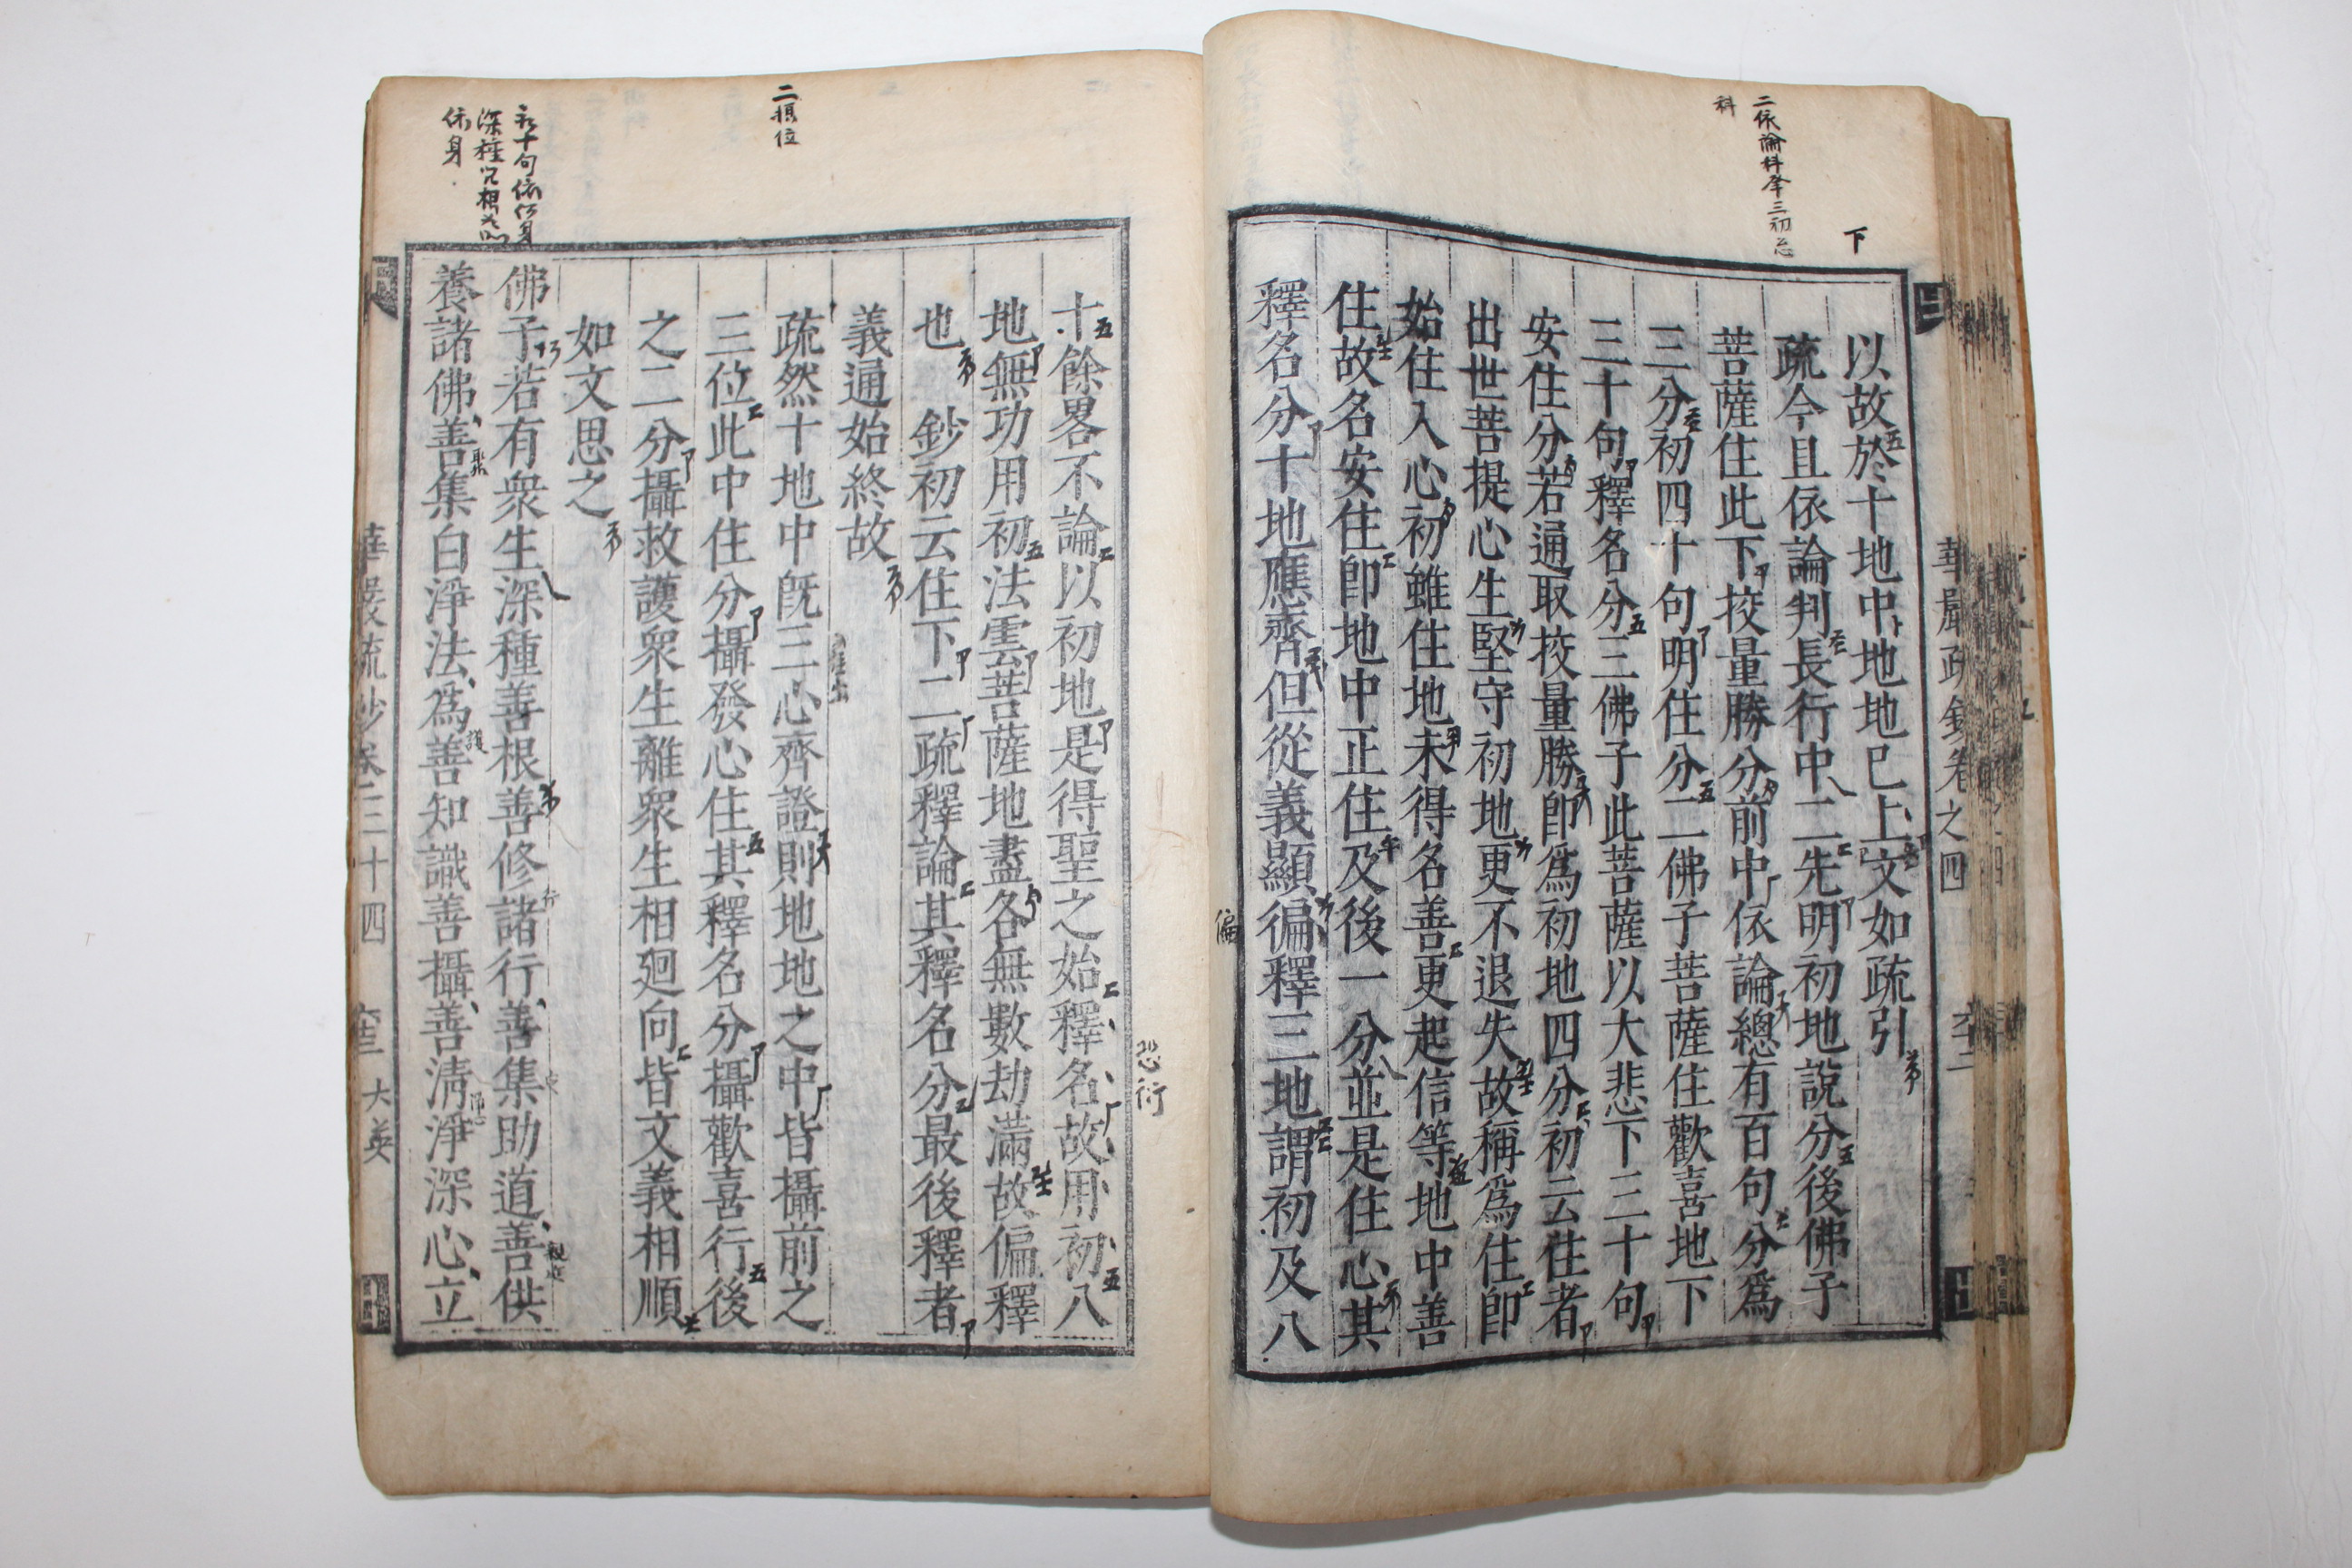 下
二依論科
科
以故於十地中地地已上文如疏引
疏今且依論判長行中二先明初地說分後佛子
菩薩住此下挍量勝分前中依論總有百句分爲
三分初四十句明住分二佛子菩薩住歡喜地下
三十句釋名分三佛子此菩薩以大悲下三十句
安住分若通取挍量勝即爲初地四分初云住者
出世菩提心生堅守初地更不退失故稱爲住即
始住入心初雖住地未得名善更起信等地中善
住故名安住即地中正住及後一分並是住心其
釋名分十地應齊但從義顯徧釋三地謂初及八
偏
華嚴疏鈔卷之四
二攝位
十餘畧不論以初地是得聖之始釋名故用初八
地無功用初法雲菩薩地盡各無數劫滿故偏釋
也 鈔初云住下二疏釋論其釋名分最後釋者
義通始終故
疏然十地中旣三心齊證則地地之中皆攝前之
三位此中住分攝發心住其釋名分攝歡喜行後
之二分攝救護衆生離衆生相廻向皆文義相順
如文思之
佛子若有衆生深種善根善修諸行善集助道善供
養諸佛善集白淨法爲善知識善攝善淸淨深心立
華嚴疏鈔卷三十四
大英